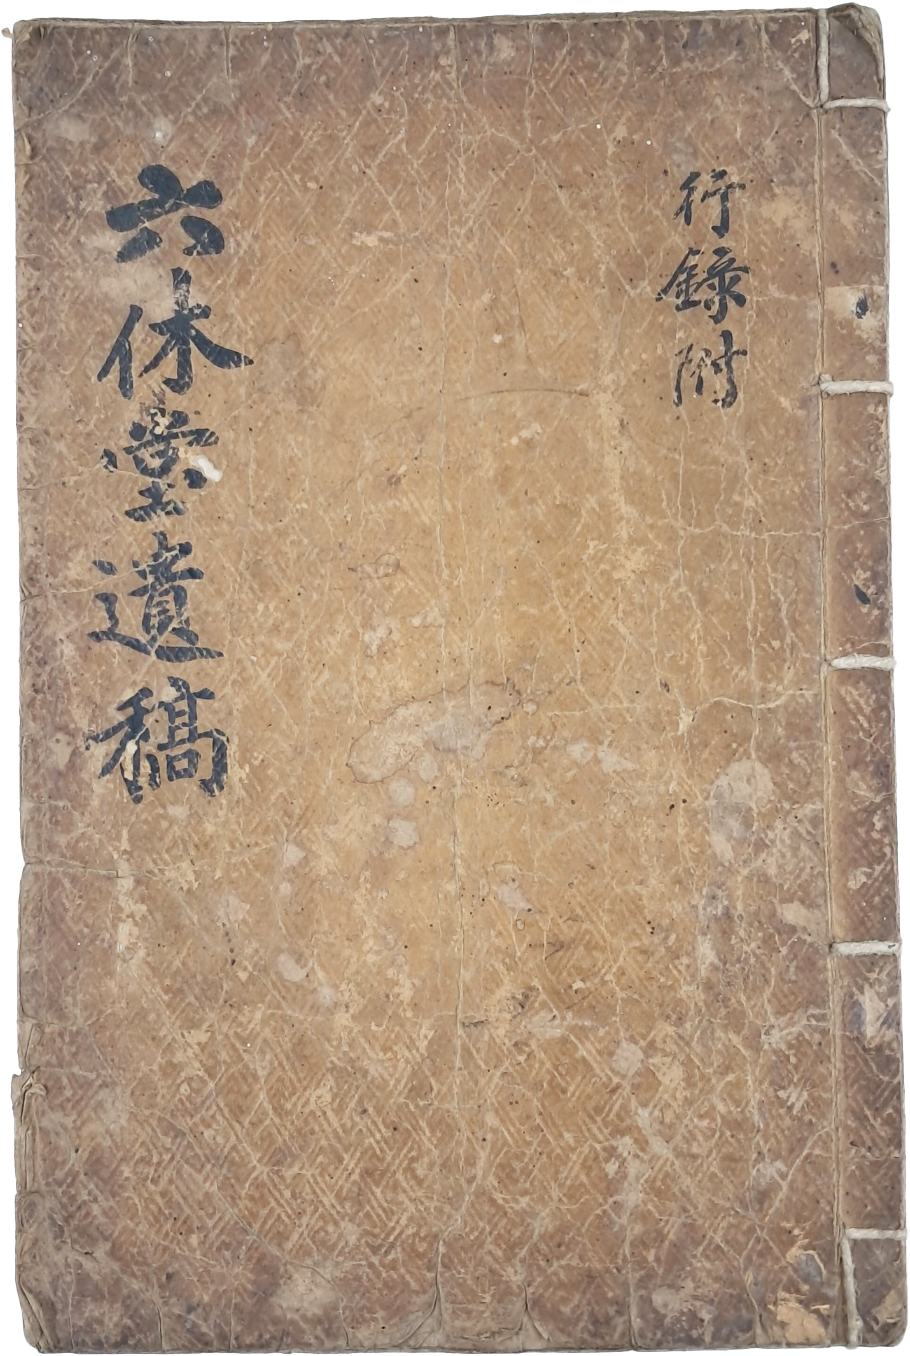 六休堂遺稿
行錄附